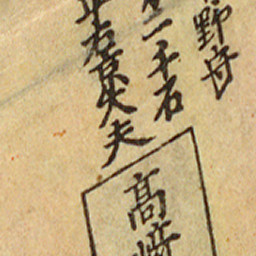 野舟
二千石
右京大夫
高崎